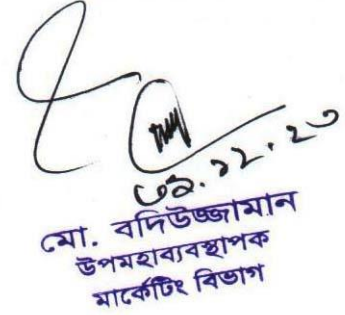 মো. বদিউজ্জামান
উপমহাব্যবস্থাপক
মার্কেটিং বিভাগ